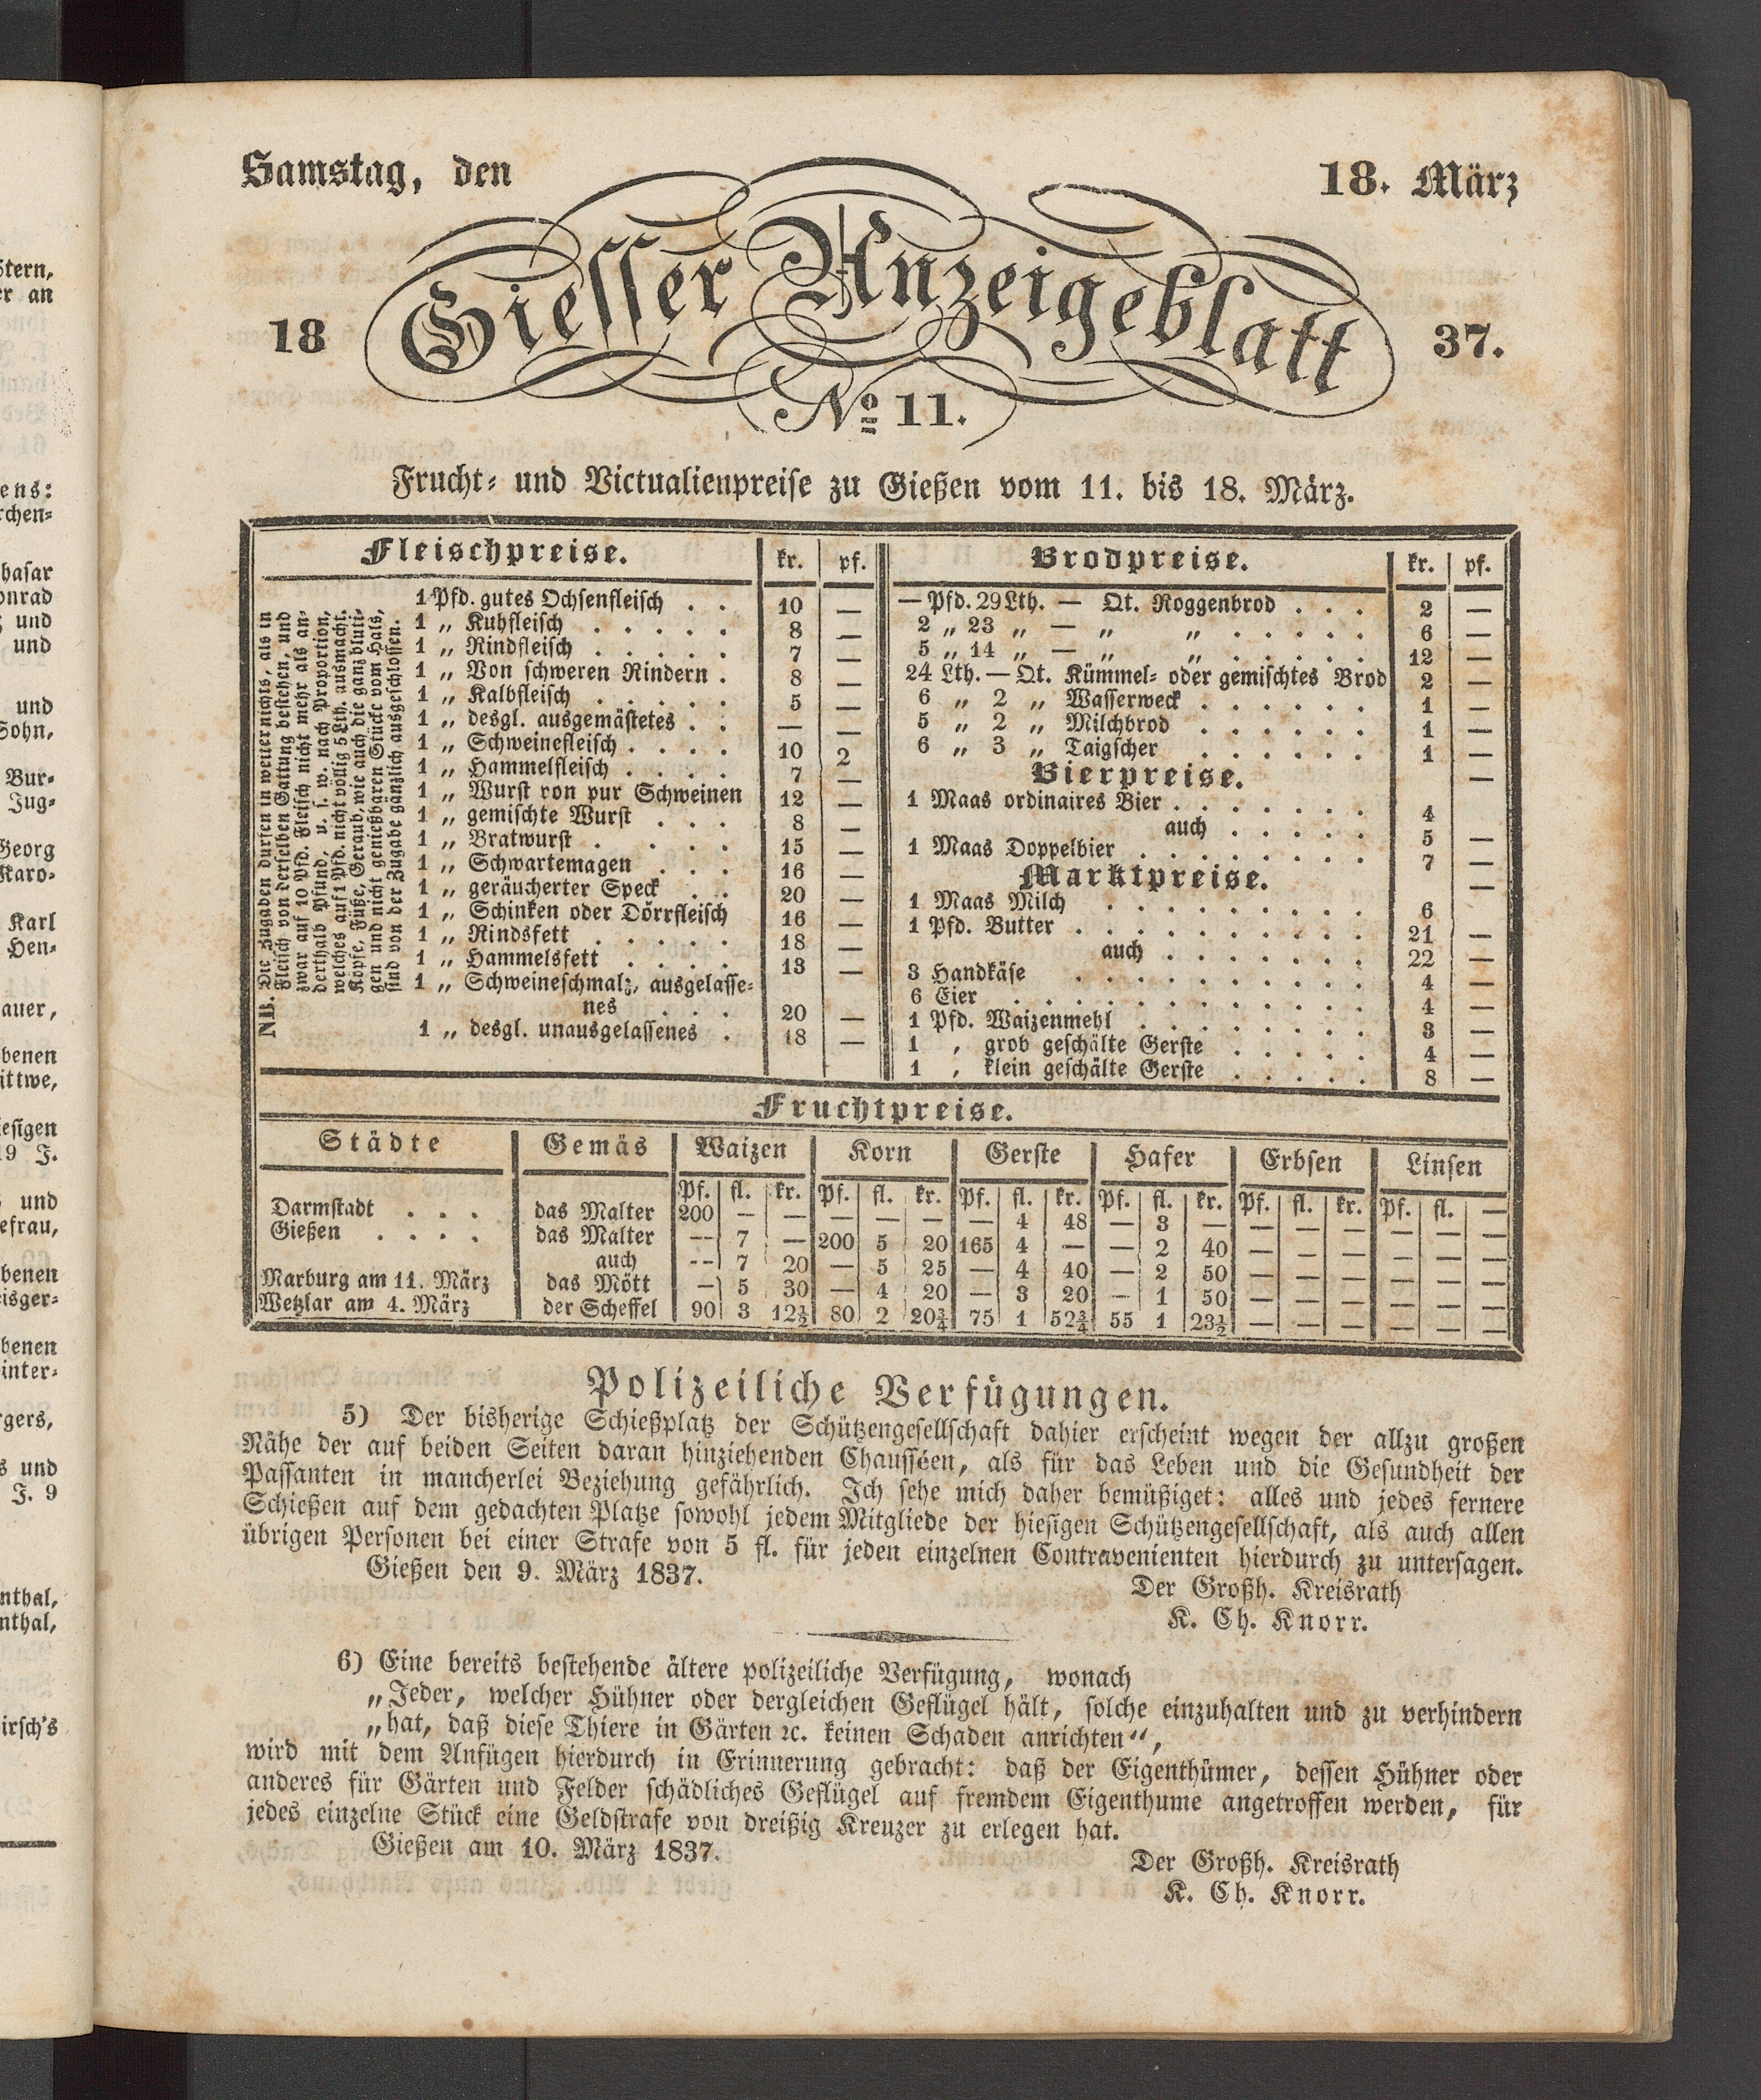 Samstag, den 18. März
18 Giesser Anzeigeblatt 37.
No 11.
Frucht- und Victualienpreise zu Gießen vom 11. bis 18. März.
Fleischpreise. kr. pf.
1 Pfd. gutes Ochsenfleisch . . 10 —
1 „ Kuhfleisch . . . . . 8 —
1 „ Rindfleisch . . . . . 7 —
1 „ Von schweren Rindern . 8 —
1 „ Kalbfleisch . . . . . 5 —
1 „ desgl. ausgemästetes . . — —
1 „ Schweinefleisch . . . . 10 2
1 „ Hammelfleisch . . . . 7 —
1 „ Wurst von pur Schweinen 12 —
1 „ gemischte Wurst . . . 8 —
1 „ Bratwurst . . . . 15 —
1 „ Schwartemagen . . . 16 —
1 „ geräucherter Speck . . 20 —
1 „ Schinken oder Dörrfleisch 16 —
1 „ Rindsfett . . . . . 18 —
1 „ Hammelsfett . . . . 13 —
1 „ Schweineschmalz, ausgelasse-
nes . . . 20 —
1 „ desgl. unausgelassenes . 18 —
NB. Die Zugaben dürfen in weiter nichts, als in
Fleisch von derselben Gattung bestehen, und
zwar auf 10 Pfd. Fleisch nicht mehr als an-
derthalb Pfund, u. s. w. nach Proportion,
welches auf 1 Pfd. nicht völlig 5 Lth. ausmacht.
Köpfe, Füße, Geraub, wie auch die ganz bluti-
gen und nicht genießbaren Stücke vom Hals,
sind von der Zugabe gänzlich ausgeschlossen.
Brodpreise. kr. pf.
— Pfd. 29 Lth. — Qt. Roggenbrod . . . 2 —
2 „ 23 „ — „ „ . . . . . 6 —
5 „ 14 „ — „ „ . . . . . 12 —
24 Lth. — Qt. Kümmel- oder gemischtes Brod 2 —
6 „ 2 „ Wasserweck . . . . . . 1 —
5 „ 2 „ Milchbrod . . . . . . 1 —
6 „ 3 „ Taigscher . . . . . . 1 —
Bierpreise.
1 Maas ordinaires Bier . . . . . . . 4 —
auch . . . . . 5 —
1 Maas Doppelbier . . . . . . . . 7 —
Marktpreise.
1 Maas Milch . . . . . . . . . 6 —
1 Pfd. Butter . . . . . . . . . . 21 —
auch . . . . . . . 22 —
3 Handkäse . . . . . . . . . . 4 —
6 Eier . . . . . . . . . . . . 4 —
1 Pfd. Waizenmehl . . . . . . . . 3 —
1 „ grob geschälte Gerste . . . . . 4 —
1 „ klein geschälte Gerste . . . . . 8 —
Fruchtpreise.
Städte Gemäs Waizen Korn Gerste Hafer Erbsen Linsen
Pf. fl. kr. Pf. fl. kr. Pf. fl. kr. Pf. fl. kr. Pf. fl. kr. Pf. fl. —
Darmstadt . . . das Malter 200 — — — — — — 4 48 — 3 — — — — — — —
Gießen . . . . das Malter — 7 — 200 5 20 165 4 — — 2 40 — — — — — —
auch — 7 20 — 5 25 — 4 40 — 2 50 — — — — — —
Marburg am 11. März das Mött — 5 30 — 4 20 — 3 20 — 1 50 — — — — — —
Wetzlar am 4. März der Scheffel 90 3 12½ 80 2 20¾ 75 1 52¾ 55 1 23½ — — — — — —
Polizeiliche Verfügungen.
5) Der bisherige Schießplatz der Schützengesellschaft dahier erscheint wegen der allzu großen
Nähe der auf beiden Seiten daran hinziehenden Chausséen, als für das Leben und die Gesundheit der
Passanten in mancherlei Beziehung gefährlich. Ich sehe mich daher bemüßiget: alles und jedes fernere
Schießen auf dem gedachten Platze sowohl jedem Mitgliede der hiesigen Schützengesellschaft, als auch allen
übrigen Personen bei einer Strafe von 5 fl. für jeden einzelnen Contravenienten hierdurch zu untersagen.
Gießen den 9. März 1837.
Der Großh. Kreisrath
K. Ch. Knorr.
6) Eine bereits bestehende ältere polizeiliche Verfügung, wonach
„Jeder, welcher Hühner oder dergleichen Geflügel hält, solche einzuhalten und zu verhindern
„hat, daß diese Thiere in Gärten ꝛc. keinen Schaden anrichten“,
wird mit dem Anfügen hierdurch in Erinnerung gebracht: daß der Eigenthümer, dessen Hühner oder
anderes für Gärten und Felder schädliches Geflügel auf fremdem Eigenthume angetroffen werden, für
jedes einzelne Stück eine Geldstrafe von dreißig Kreuzer zu erlegen hat.
Gießen am 10. März 1837.
Der Großh. Kreisrath
K. Ch. Knorr.